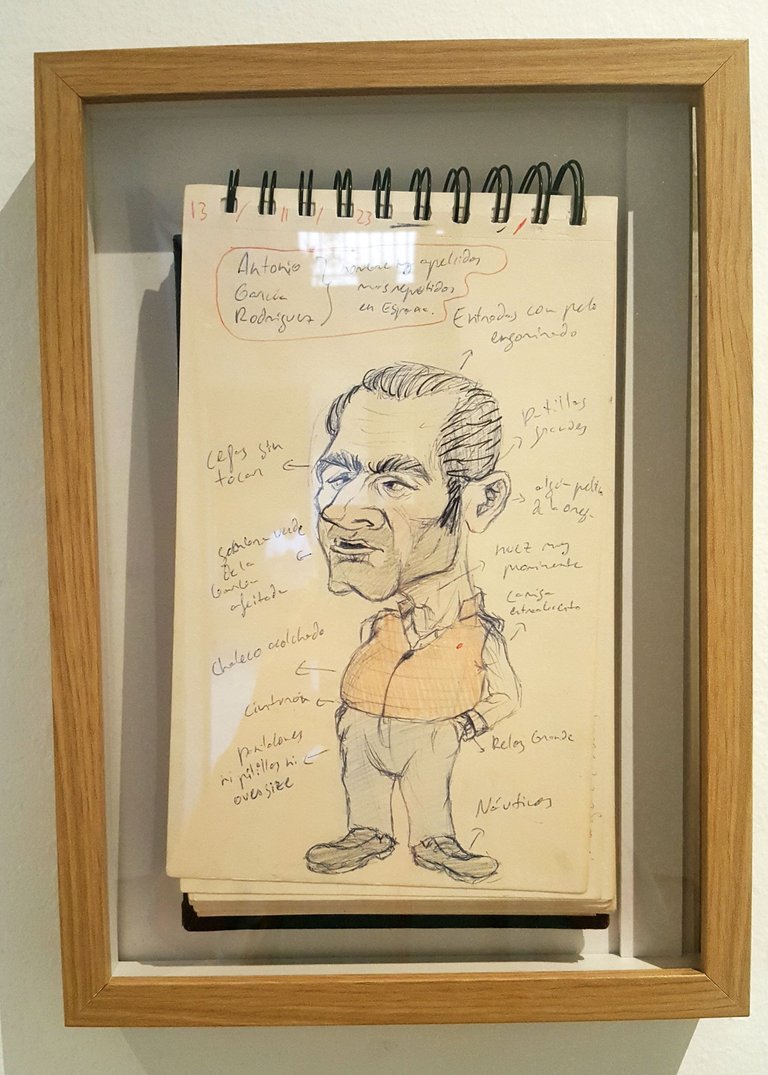 13 / 11 / 23
Antonio
García
Rodríguez
nombre y apellidos
mas repetidos
en España.
Entradas con pelo
engominado
patillas
grandes
cejas sin
tocar
algún
nuez muy
prominente
de la
afeitada
camisa
Chaleco acolchado
cinturón
Reloj Grande
pantalones
ni pitillos ni
oversize
Náuticos